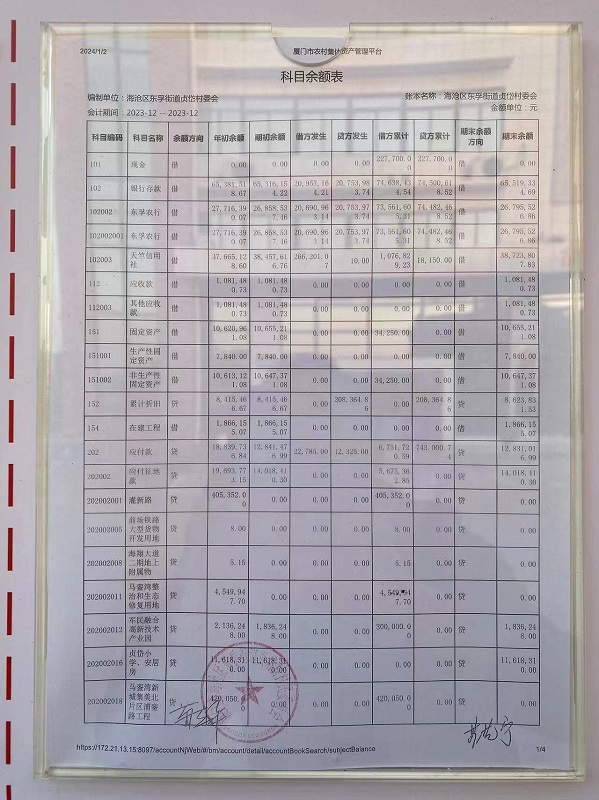 2024/1/2 厦门市农村集体资产管理平台
科目余额表
编制单位：海沧区东孚街道贞岱村委会 账本名称：海沧区东孚街道贞岱村委会
会计期间：2023-12 -- 2023-12 金额单位：元
科目编码 科目名称 余额方向 年初余额 期初余额 借方发生 贷方发生 借方累计 贷方累计 期末余额方向 期末余额
101 现金 借 0.00 0.00 0.00 0.00 227,700.00 227,700.00 借 0.00
102 银行存款 借 65,381,518.67 65,316,154.22 20,957,164.21 20,753,983.74 74,638,434.54 74,500,618.52 借 65,519,334.69
102002 东孚农行 借 27,716,390.07 26,858,537.46 20,690,963.14 20,753,973.74 73,561,605.31 74,482,468.52 借 26,795,526.86
102002001 东孚农行 借 27,716,390.07 26,858,537.46 20,690,963.14 20,753,973.74 73,561,605.31 74,482,468.52 借 26,795,526.86
102003 天竺信用社 借 37,665,128.60 38,457,616.76 266,201.07 10.00 1,076,829.23 18,150.00 借 38,723,807.83
112 应收款 借 1,081,480.73 1,081,480.73 0.00 0.00 0.00 0.00 借 1,081,480.73
112003 其他应收款 借 1,081,480.73 1,081,480.73 0.00 0.00 0.00 0.00 借 1,081,480.73
151 固定资产 借 10,620,961.08 10,655,211.08 0.00 0.00 34,250.00 0.00 借 10,655,211.08
151001 生产性固定资产 借 7,840.00 7,840.00 0.00 0.00 0.00 0.00 借 7,840.00
151002 非生产性固定资产 借 10,613,121.08 10,647,371.08 0.00 0.00 34,250.00 0.00 借 10,647,371.08
152 累计折旧 贷 8,415,466.67 8,415,466.67 0.00 208,364.86 0.00 208,364.86 贷 8,623,831.53
154 在建工程 借 1,866,155.07 1,866,155.07 0.00 0.00 0.00 0.00 借 1,866,155.07
202 应付款 贷 18,839,736.84 12,841,476.99 22,785.00 12,325.00 6,751,720.59 743,000.74 贷 12,831,016.99
202002 应付征地款 贷 19,693,773.15 14,018,410.30 0.00 0.00 5,675,362.85 0.00 贷 14,018,410.30
202002001 灌新路 贷 405,352.00 0.00 0.00 0.00 405,352.00 0.00 贷 0.00
202002005 前场铁路大型货物开发用地 贷 8.00 0.00 0.00 0.00 8.00 0.00 贷 0.00
202002008 海翔大道二期地上附属物 贷 5.15 0.00 0.00 0.00 5.15 0.00 贷 0.00
202002011 马銮湾整治和生态修复用地 贷 4,549,947.70 0.00 0.00 0.00 4,549,947.70 0.00 贷 0.00
202002012 军民融合高新技术产业园 贷 2,136,248.00 1,836,248.00 0.00 0.00 300,000.00 0.00 贷 1,836,248.00
202002016 贞岱小学、安居房 贷 11,618,310.00 11,618,310.00 0.00 0.00 0.00 0.00 贷 11,618,310.00
202002018 马銮湾新城集美北片区浦銮路工程 贷 420,050.00 0.00 0.00 0.00 420,050.00 0.00 贷 0.00
https://172.21.13.15:8097/accountNjWeb/#/bm/account/detail/accountBookSearch/subjectBalance 1/4